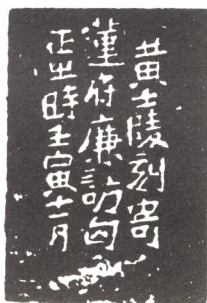 黄士陵刻寄
蓮府廉訪匃
正之時壬寅十一月